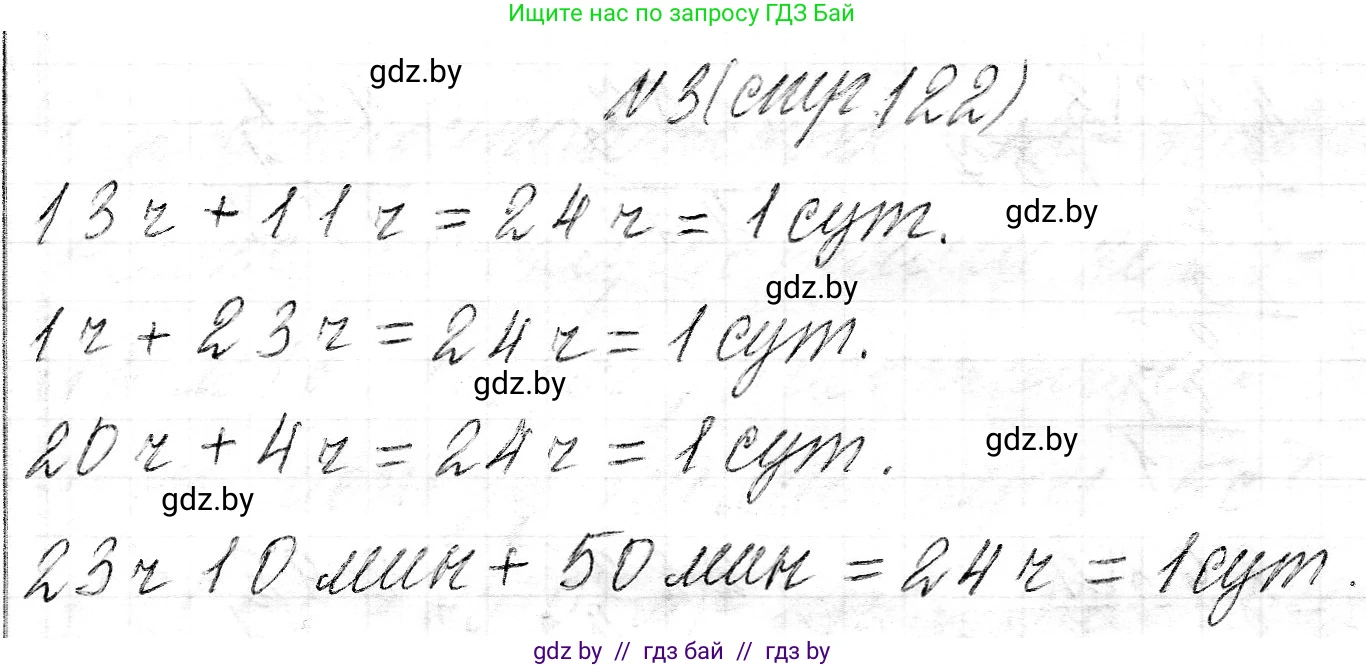 Ищите нас по запросу ГДЗ Бай
gdz.by
№ 3 (стр. 122)
13 ч + 11 ч = 24 ч = 1 сут.
gdz.by
gdz.by
1 ч + 23 ч = 24 ч = 1 сут.
gdz.by
20 ч + 4 ч = 24 ч = 1 сут.
gdz.by
gdz.by
23 ч 10 мин + 50 мин = 24 ч = 1 сут.
gdz by // гдз бай // гдз by